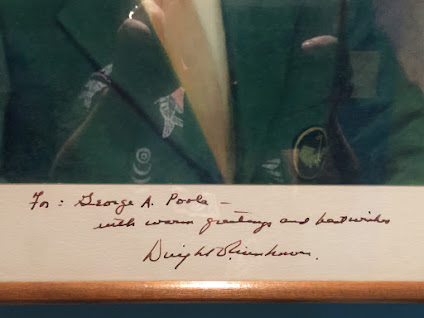 For: George A. Poole –
with warm greetings and best wishes
Dwight D Eisenhower.